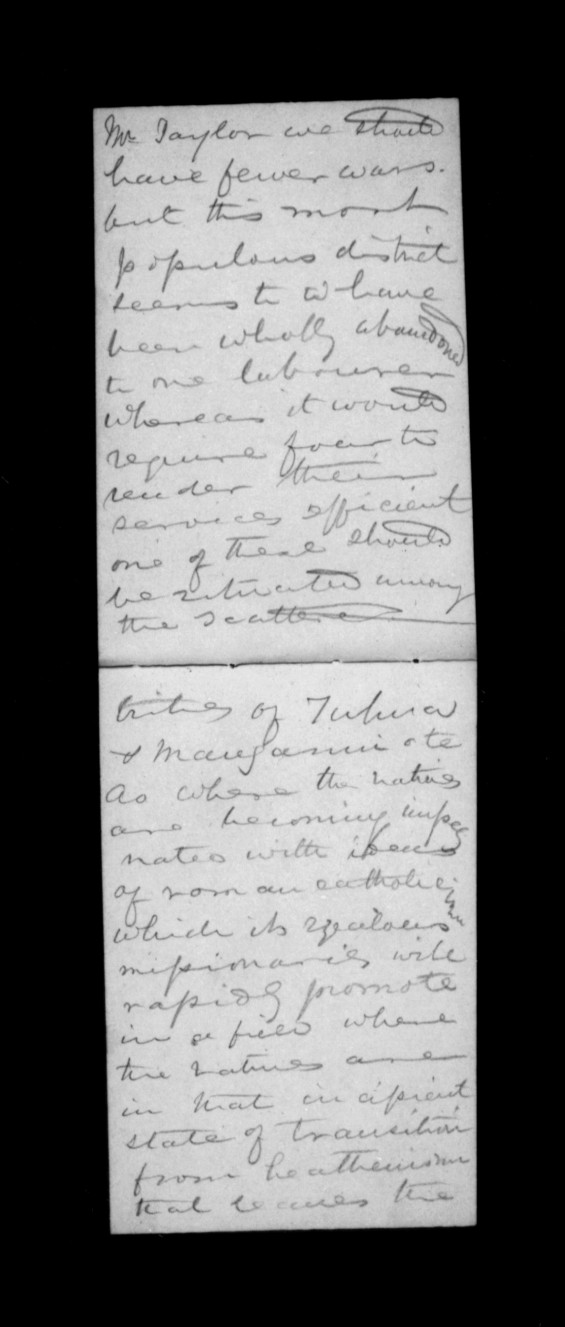 Mr Taylor we should
have fewer wars.
but this most
populous district
seems to to have
been wholly abandoned
to one labourer
whereas it would
require four to
render their
services efficient
one of these should
be situated among
the scattered
tribes of Tuhua
& Mangamui ote
ao where the natives
are becoming impreg
nated with ideas
of roman catholicism
which its zealous
missionaries will
rapidly promote
in a field where
the natives are
in that incipient
state of transition
from heathenism
that leaves the